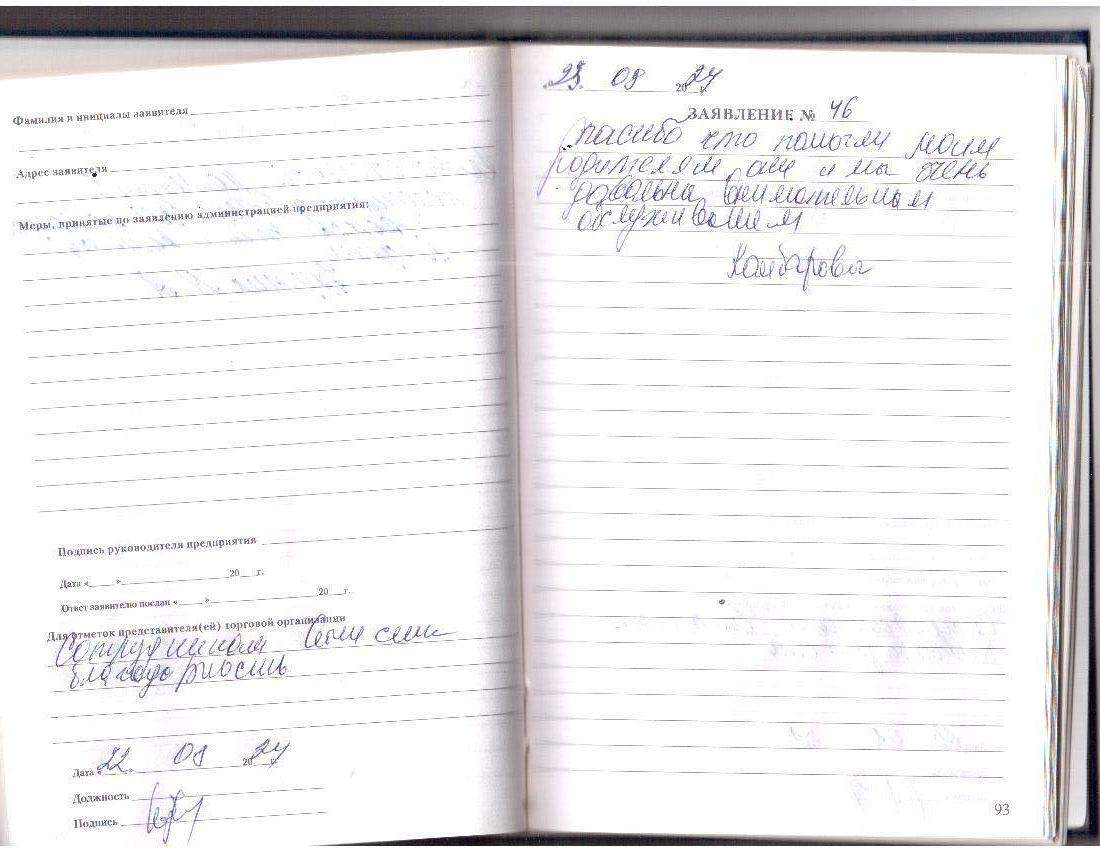 Фамилия и инициалы заявителя
Адрес заявителя
Меры, принятые по заявлению администрацией предприятия:
Подпись руководителя предприятия
Дата «     »                     20     г.
Ответ заявителю послан «     »                     20     г.
Для отметок представителя(ей) торговой организации
Сотрудникам
благодарность
Дата «22» 08 2024
Должность
Подпись
08 2024
ЗАЯВЛЕНИЕ № 46
Спасибо что помогли моим
родителям и мы очень
довольна внимательным
обслуживанием
93